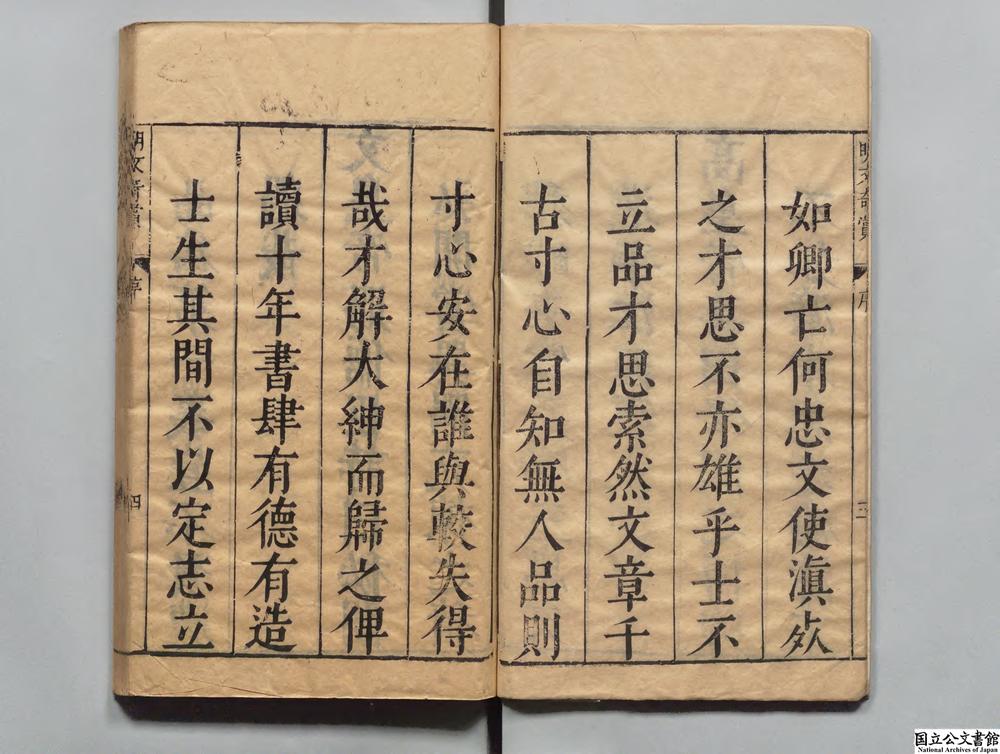 明文奇賞 序 三
如卿亡何忠文使滇死
之才思不亦雄乎士不
立品才思索然文章千
古寸心自知無人品則
寸心安在誰與較失得
哉才解大紳而歸之俾
讀十年書肆有德有造
士生其間不以定志立
明文奇賞 序 四
国立公文書館
National Archives of Japan